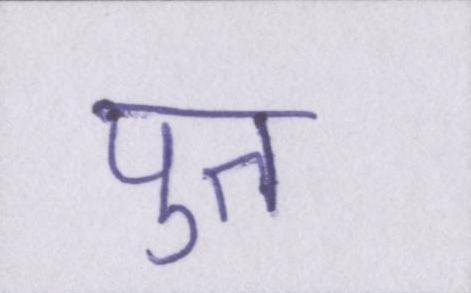 पुत